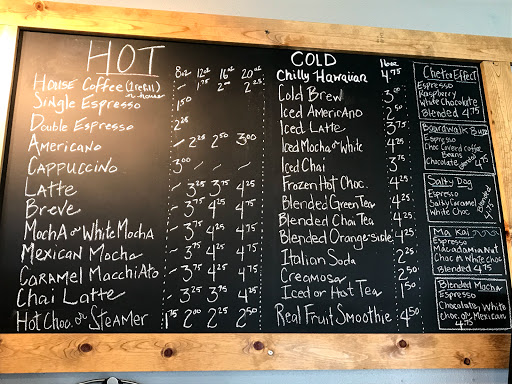 HOT 8oz 12oz 16oz 20oz
House Coffee (1 refill) n house - 1.75 2.00 2.25
Single Espresso 1.50
Double Espresso 2.25
Americano - 2.25 2.50 3.00
Cappuccino 3.00 - - -
Latte - 3.25 3.75 4.25
Breve - 3.75 4.25 4.75
Mocha or White Mocha - 3.75 4.25 4.75
Mexican Mocha - 3.75 4.25 4.75
Caramel Macchiato - 3.75 4.25 4.75
Chai Latte - 3.25 3.75 4.25
Hot Choc. or Steamer 1.75 2.00 2.25 2.50
COLD 16oz
Chilly Hawaiian 4.75
Cold Brew 3.00
Iced Americano 2.50
Iced Latte 3.75
Iced Mocha or White 4.25
Iced Chai 3.75
Frozen Hot Choc. 4.25
Blended Green Tea 4.25
Blended Chai Tea 4.25
Blended Orange-sicle 4.25
Italian Soda 2.25
Creamosa 2.50
Iced or Hot Tea 1.50
Real Fruit Smoothie 4.50
Cheeta Effect
Espresso
Raspberry
White Chocolate
Blended 4.75
Boardwalk Buzz
Espresso
Choc Covered Coffee
Beans
Chocolate Blended 4.75
Salty Dog
Espresso
Salty Caramel
White Choc
Blended 4.75
Ma Kai
Espresso
Macadamia Nut
Choc or White Choc
Blended 4.75
Blended Mocha
Espresso
Chocolate, White
Choc. or Mexican
4.75